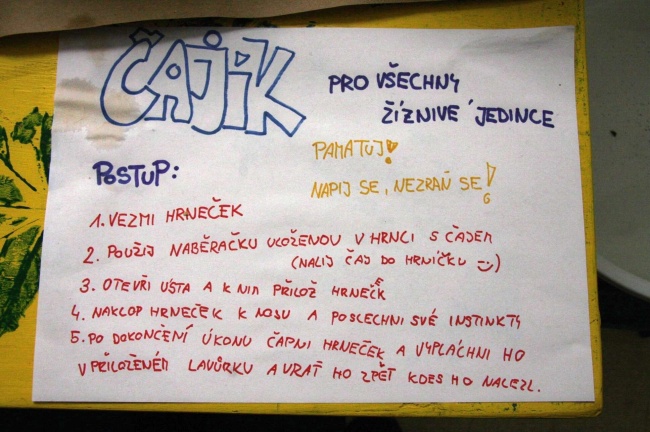 ČAJÍK
PRO VŠECHNY
ŽÍZNIVÉ JEDINCE
PAMATUJ!
NAPIJ SE, NEZRAŇ SE!
POSTUP:
1. VEZMI HRNEČEK
2. POUŽIJ NABĚRAČKU ULOŽENOU V HRNCI S ČAJEM
(NALIJ ČAJ DO HRNÍČKU :-))
3. OTEVŘI ÚSTA A K NIM PŘILOŽ HRNEČEK
4. NAKLOP HRNEČEK K NOSU A POSLECHNI SVÉ INSTINKTY
5. PO DOKONČENÍ ÚKONU ČAPNI HRNEČEK A VYPLÁCHNI HO
V PŘILOŽENÉM LAVŮRKU A VRAŤ HO ZPĚT KDES HO NALEZL.